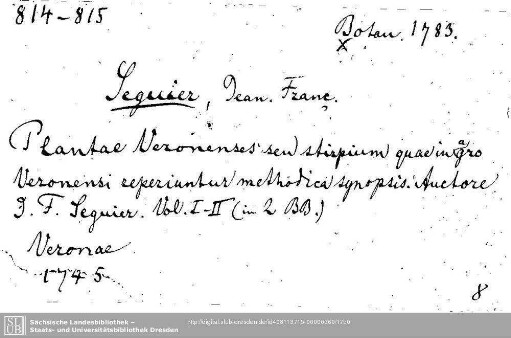 814-815
Botan. 1783.
x
Seguier, Jean. Franç.
Plantae Veronenses seu stirpium quae in agro
Veronensi reperiuntur methodica synopsis. Auctore
J. F. Seguier. Vol. I-II (in 2 BB.)
Veronae
1745
8
SLUB
Sächsische Landesbibliothek –
Staats- und Universitätsbibliothek Dresden